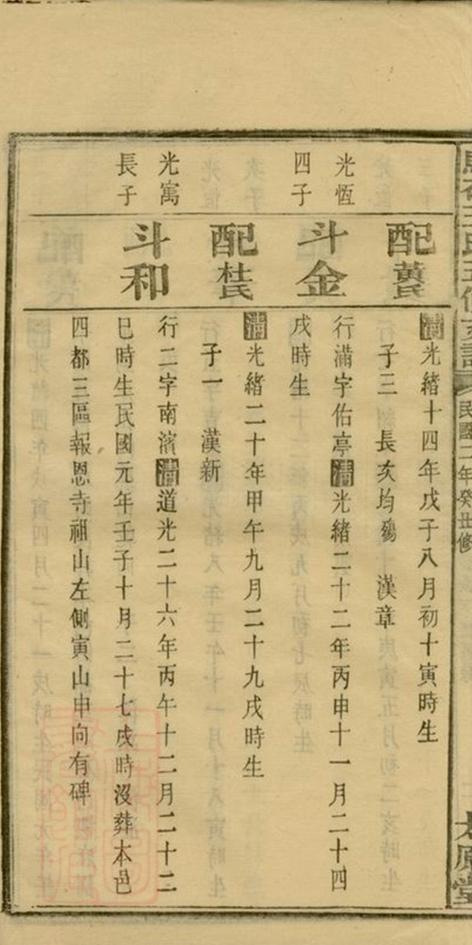 配黃氏
清光緒十四年戊子八月初十寅時生
子三 長亥均殤 漢章
光恆四子
斗金
行滿字佑亭清光緒二十二年丙申十一月二十四
戌時生
配杜氏
清光緒二十年甲午九月二十九戌時生
子一 漢新
光寓長子
斗和
行二字南濱清道光二十六年丙午十二月二十二
巳時生民國元年壬子十月二十七戌時沒葬本邑
四都三區報恩寺祖山左側寅山申向有碑
民國二年癸丑修
太原堂